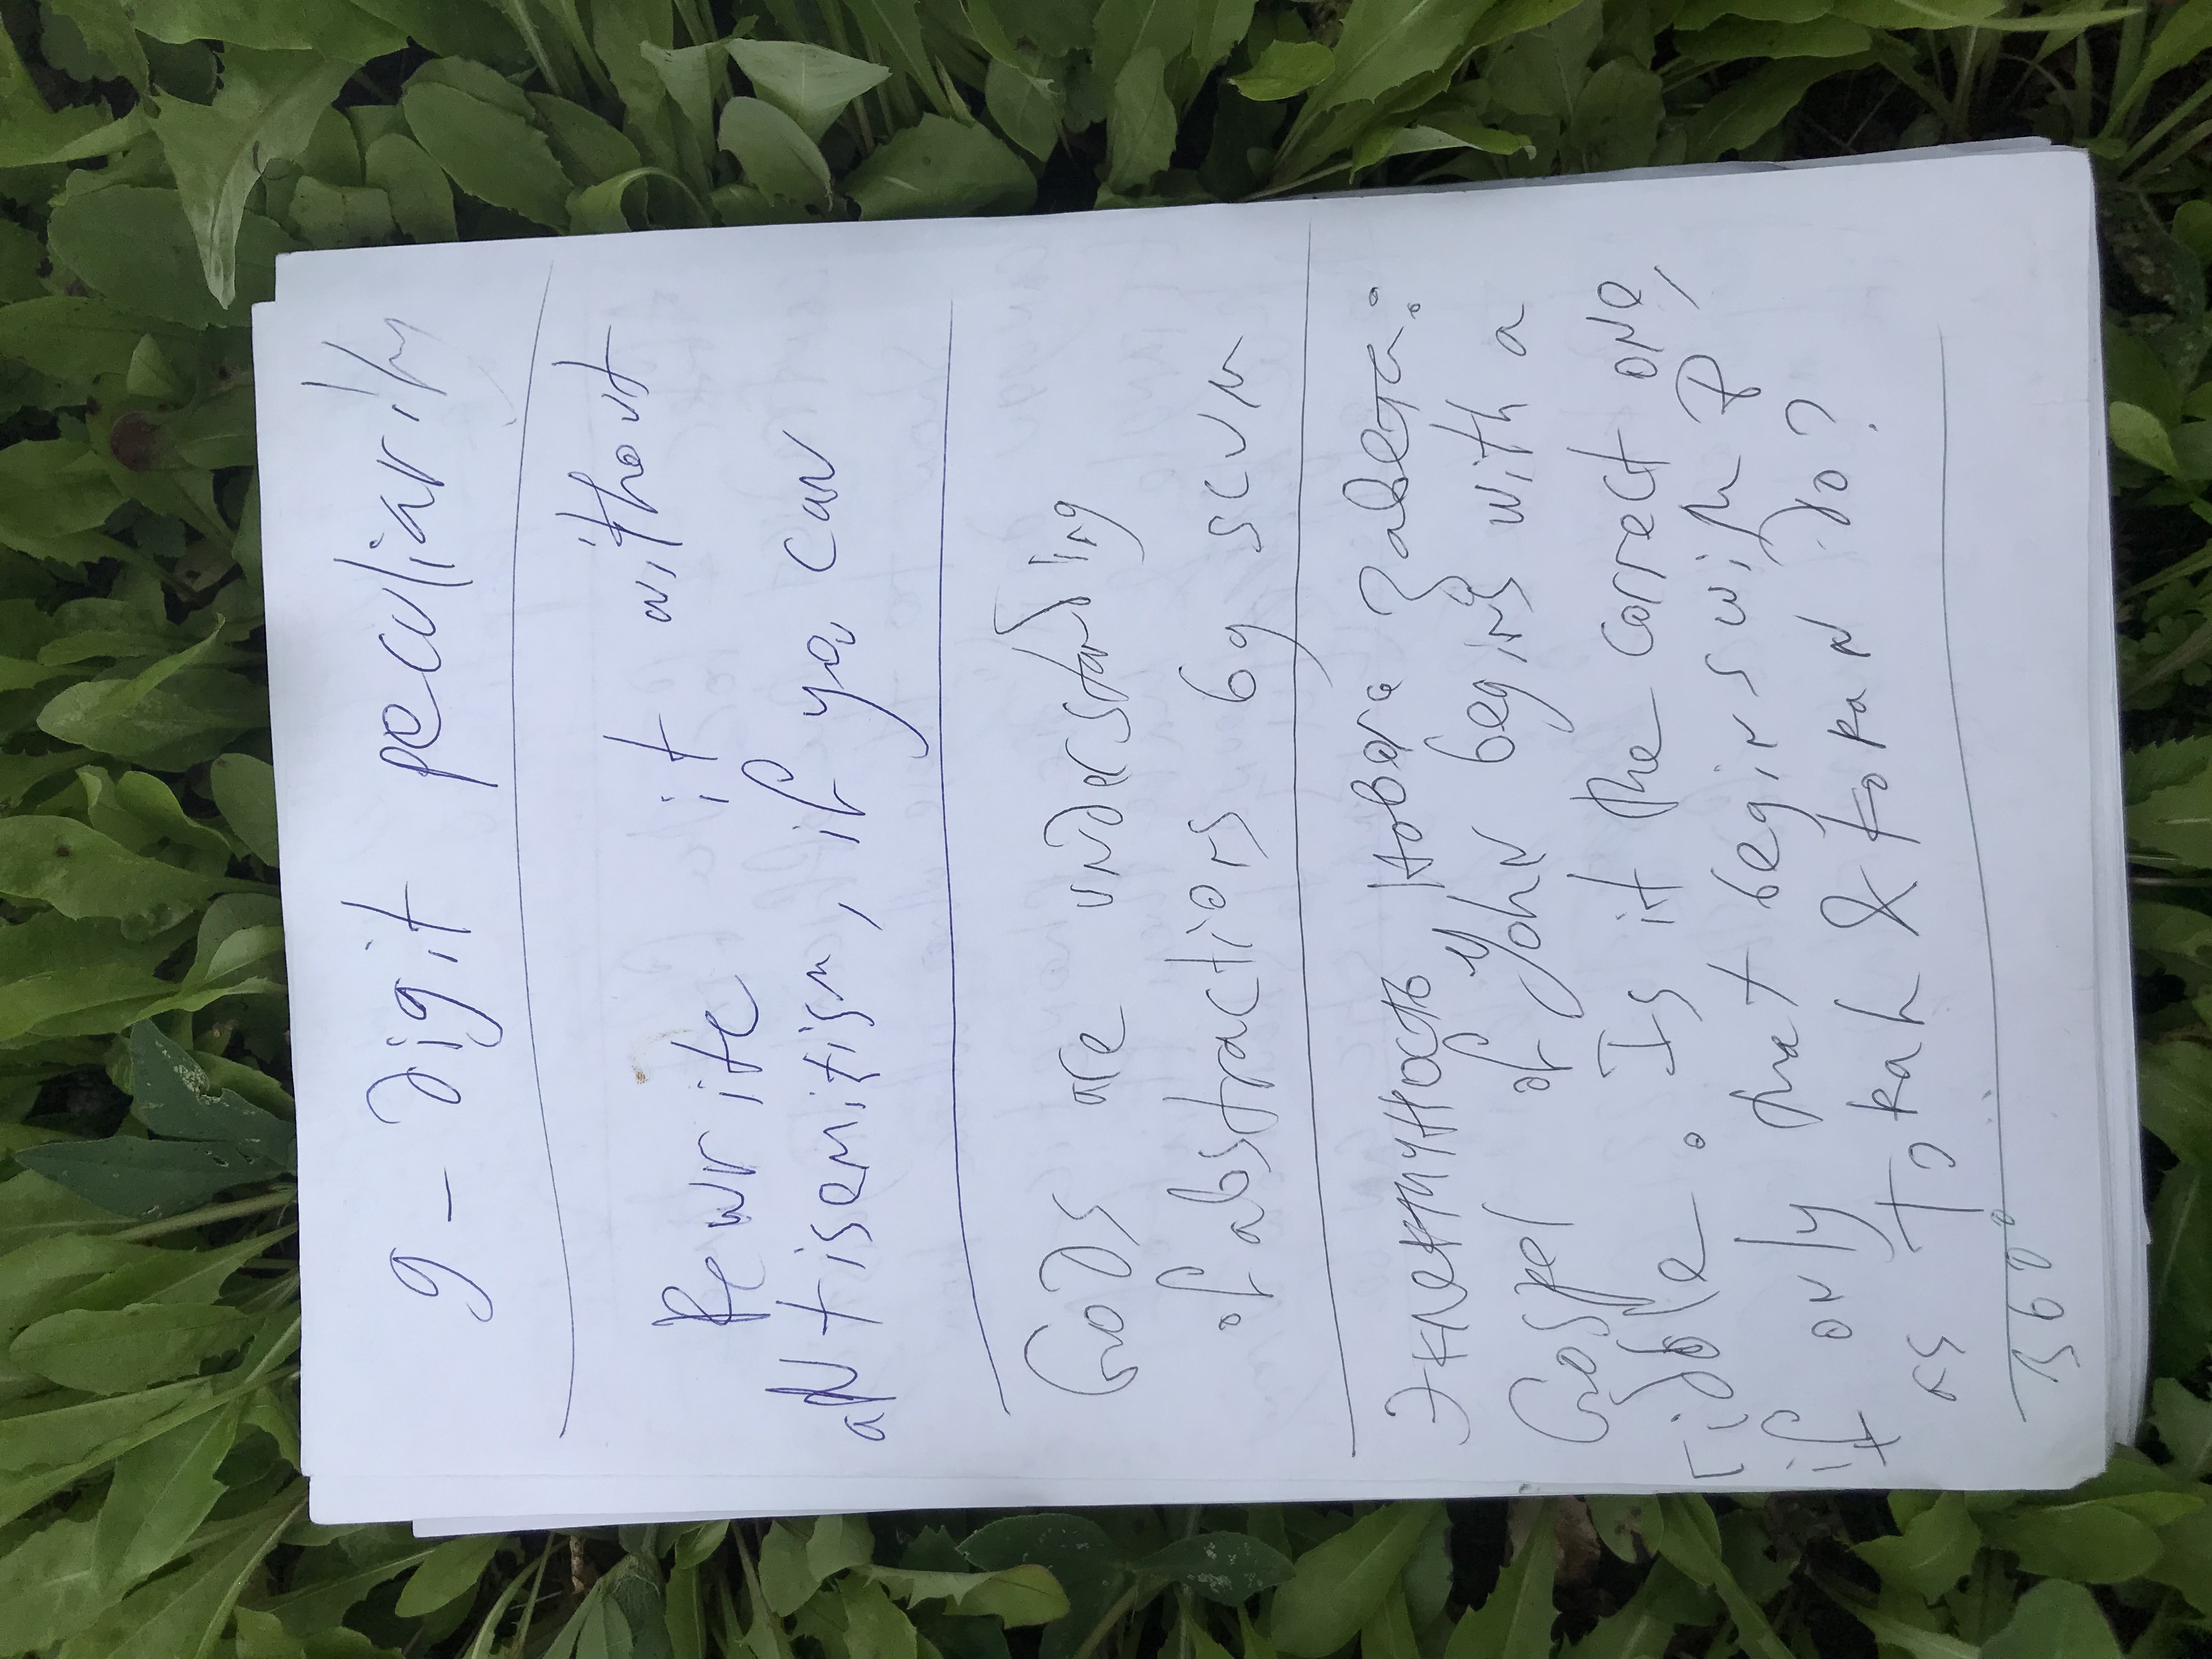 9 - digit peculiarity
Rewrite it without
antisemitism, if you can
Gods are understanding
of abstractions by scum
Эклектичность Нового Завета:
Gospel of John begins with a
riddle. Is it the correct one,
if only that begins with B
as Torah & Koran do?
360°